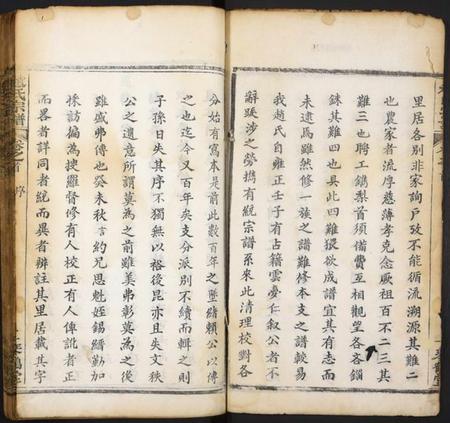 里居各別非家詢戶攷不能衍流溯源其難二
也農家者流序慈薄孝克念厥祖百不二三其
難三也聘工鐫梨首須備費互相觀望各吝錙
銖其難四也具此四難猥欲成譜宜其有志而
未逮焉雖然修一族之譜難修本支之譜較易
我趙氏自雍正壬子有占籍雲夢仁叙公者不
辭跋涉之勞攜有統宗譜系來此清理校對各
分始有寫本是前此數百年之墜緒賴公以傳
之也迄今又百年矣支分派別不續而輯之則
子孫日失其序不獨無以裕後昆亦且失文秩
公之遺意所謂莫為之前雖美弗彰莫為之後
雖盛弗傳也癸未秋言約兄思魁姪錫縉勤加
採訪徧為搜羅督修有人校正有人俾訛者正
而畧者詳同者統而異者辨註其里居載其字
趙氏宗譜 卷之首 序